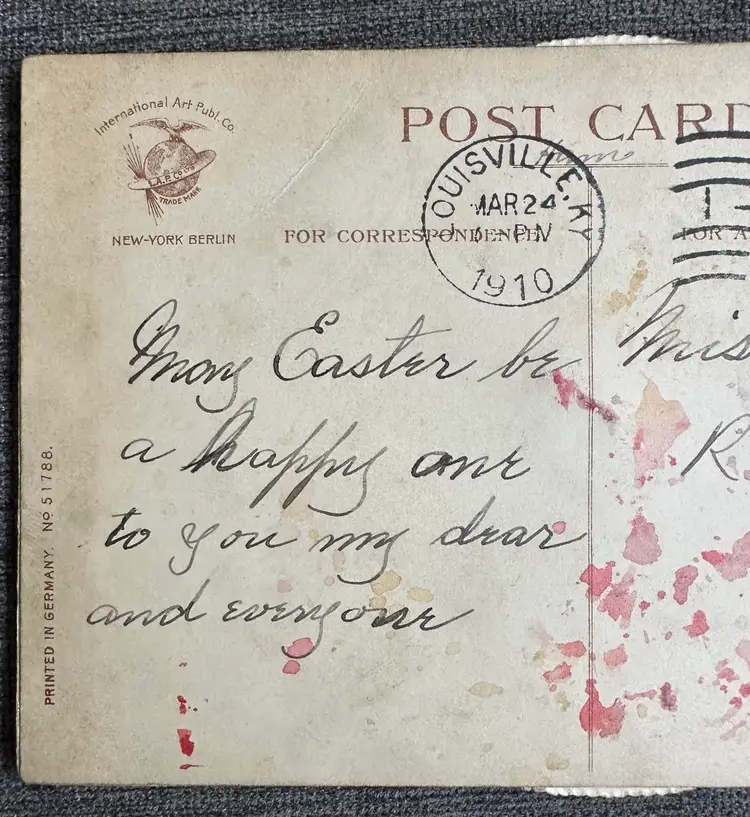 International Art Publ. Co.
I.A.P. Co. Ltd
TRADE MARK
NEW-YORK BERLIN
POST CARD
LOUISVILLE, KY
MAR 24
PM
1910
FOR CORRESPONDENCE
FOR A
May Easter be
a happy one
to you my dear
and everyone
Miss
R
PRINTED IN GERMANY. No 51788.